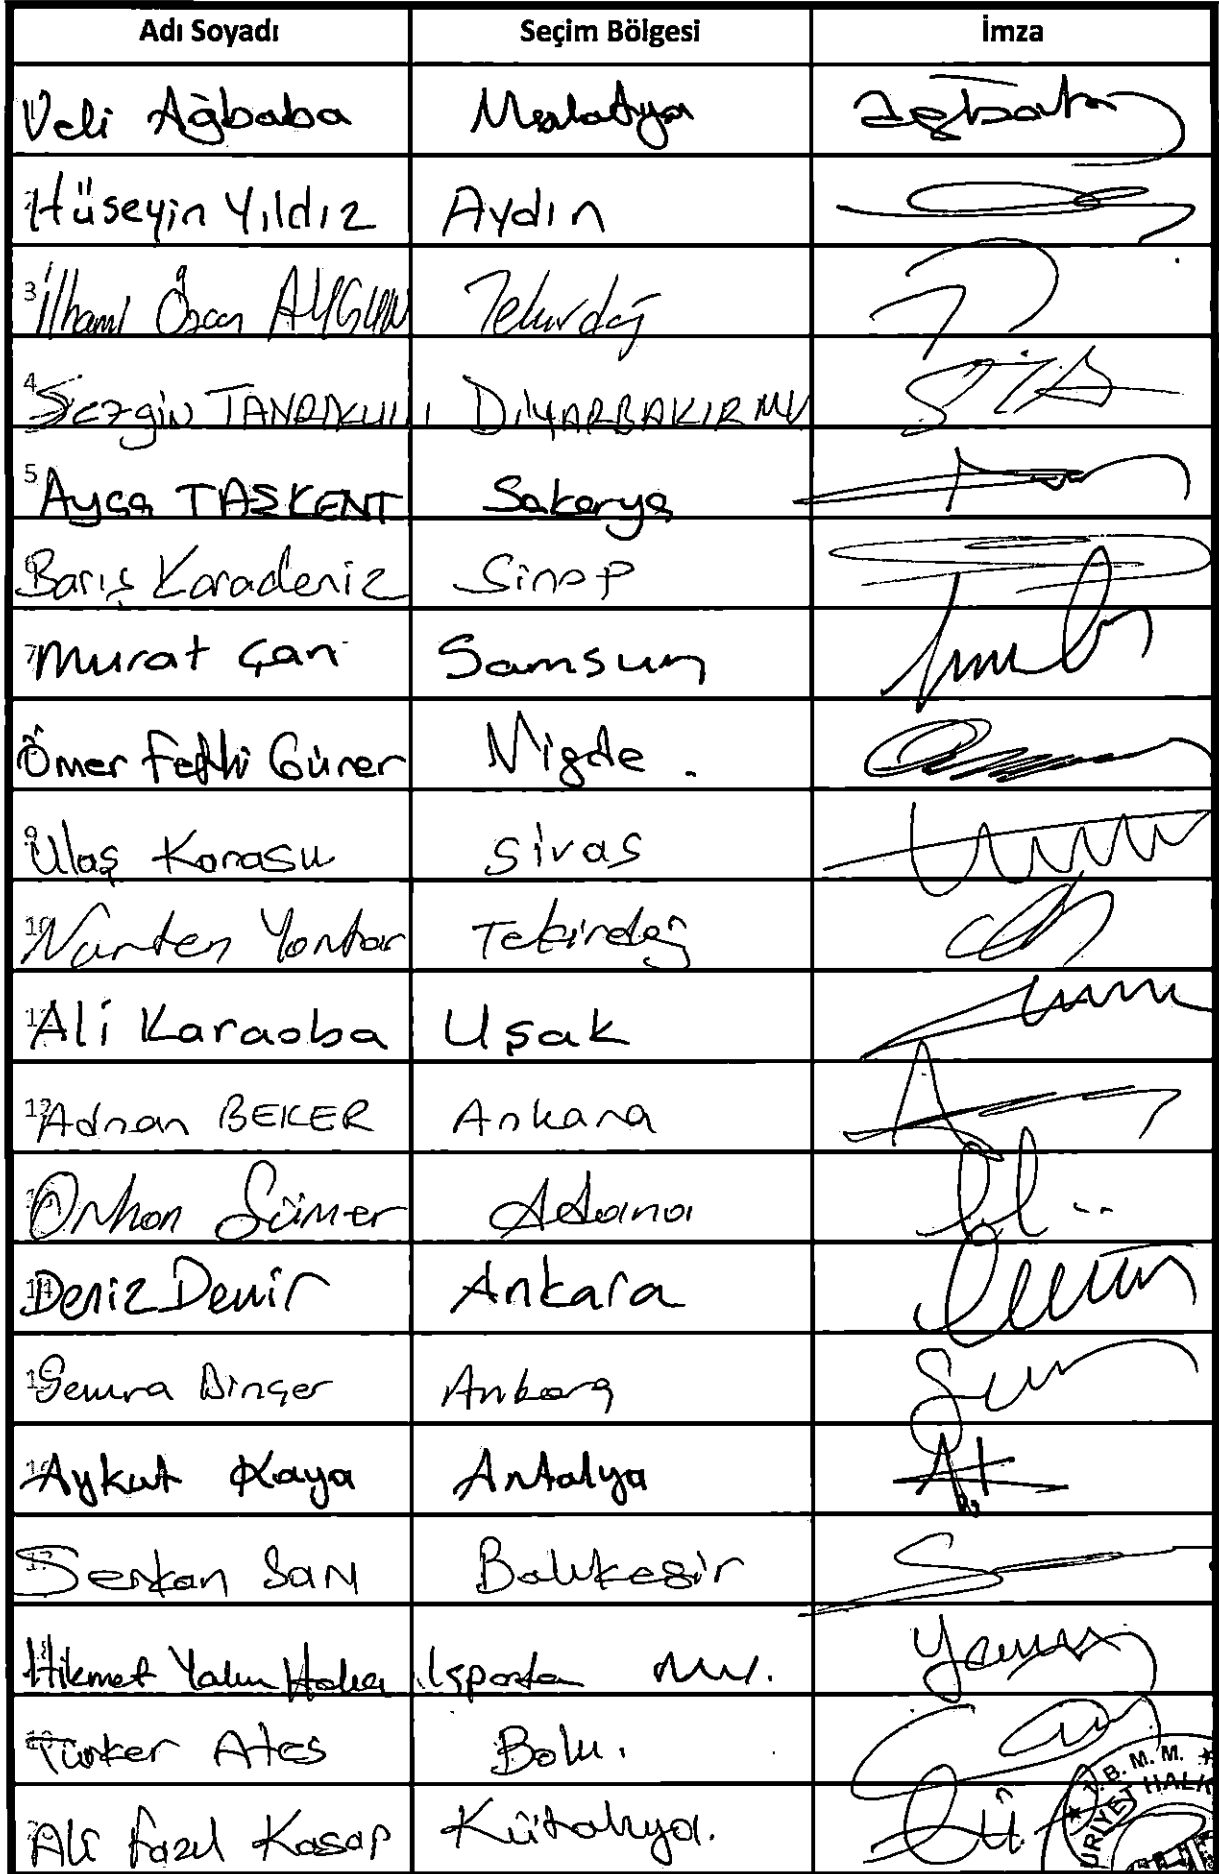 Adı Soyadı Seçim Bölgesi İmza
Veli Ağbaba Malatya
Hüseyin Yıldız Aydın
3 İlhami Özcan AYGUN Tekirdağ
4 Sezgin TANRIKULU DİYARBAKIR MV
5 Ayça TAŞKENT Sakarya
6 Barış Karadeniz Sinop
7 Murat Çan Samsun
Ömer Fethi Gürer Niğde .
9 Ulaş Karasu Sivas
10 Nurten Yontar Tekirdağ
Ali Karaoba Uşak
12 Adnan BEKER Ankara
Orhan Sümer Adana
14 Deniz Demir Ankara
Semra Dinçer Ankara
16 Aykut Kaya Antalya
17 Serkan SARI Balıkesir
Hikmet Yalım Halıcı Isparta MV.
Türker Ateş Bolu.
Ali Fazıl Kasap Kütahya.
T.B.M.M.
URİYET HALK